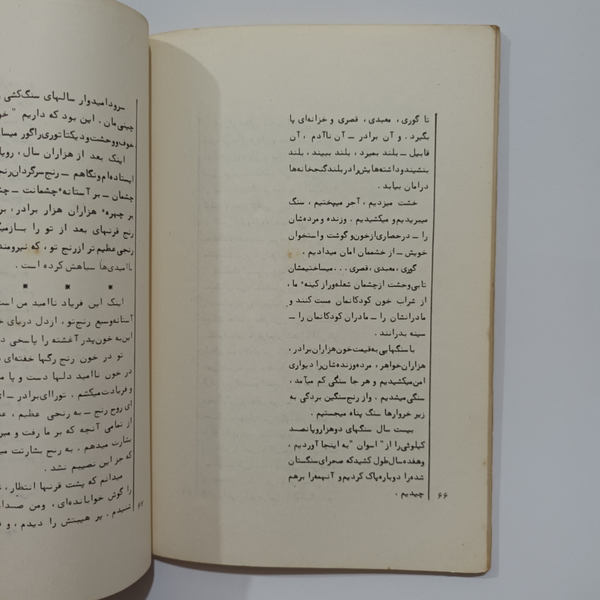 تا گوری، معبدی، قصری و خزانه‌ای پا
بگیرد. و آن برادر ــ آن ناآدم، آن
قابیل ــ بلند بمیرد، بلند ببیند، بلند
بنشیند و داشته‌هایش را در بلند گنجخانه‌ها
در امان بیابد.
خشت میزدیم، آجر میپختیم، سنگ
میبریدیم و میکشیدیم. و زنده و مرده‌شان
را ــ در حصاری از خون و گوشت و استخوان
خویش ــ از خشممان امان میدادیم.
گوری، معبدی، قصری... میساختیمشان
تا بی‌وحشت از چشمان شعله‌ور از کینهٔ ما،
از شراب خون کودکانمان مست کنند و
مادرانشان را ــ مادران کودکانمان را ــ
سینه بدرانند.
با سنگهایی به قیمت خون هزاران برادر،
هزاران خواهر، مرده و زنده‌شان را دیواری
امن میکشیدیم و هر جا سنگی کم میآمد،
سنگی میشدیم. و از رنج سنگین بردگی به
زیر خروارها سنگ پناه میجستیم.
بیست سال سنگهای دو هزار و پانصد
کیلوئی را از "اسوان" به اینجا آوردیم،
و هفده سال طول کشید که صحرای سنگستان
شده را دوباره پاک کردیم و آنهمه را برهم
چیدیم.
۶۶
سرود امیدوار سالهای سنگ‌کشی
چینی‌مان. این بود که داریم "خو
خوف و وحشت و دیکتاتوری را گور میسا
اینک بعد از هزاران سال، رویا
ایستاده‌ام و نگاهم ــ رنج سرگردان رنج
چشمان ــ بر آستانهٔ چشمانت ــ چش
بر چهرهٔ هزاران هزار برادر، بر
رنج قرنهای بعد از تو را بازمیگ
رنجی عظیم‌تر از رنج تو، که نیرومند
ناامیدی‌ها سیاهش کرده است.
* * *
اینک این فریاد ناامید من است
آستانه وسیع رنج تو، از دل دریای خ
این به خون پدر آغشته را پاسخی د
تو در خون رنج رگها خفته‌ای
در خون ناامید دلها دست و پا م
و فریادت میکشم. تو را ای برادر ــ ای
ای روح رنج ــ به رنجی عظیم، ع
از تمامی آنچه که بر ما رفت و میر
بشارت میدهم. به رنج بشارتت مید
که جز این نصیبم نشد.
میدانم که پشت قرنها انتظار،
را گوش خوابانده‌ای، ومن صدا
شنیدم. پر هیبتش را دیدم، و ف
۶۷